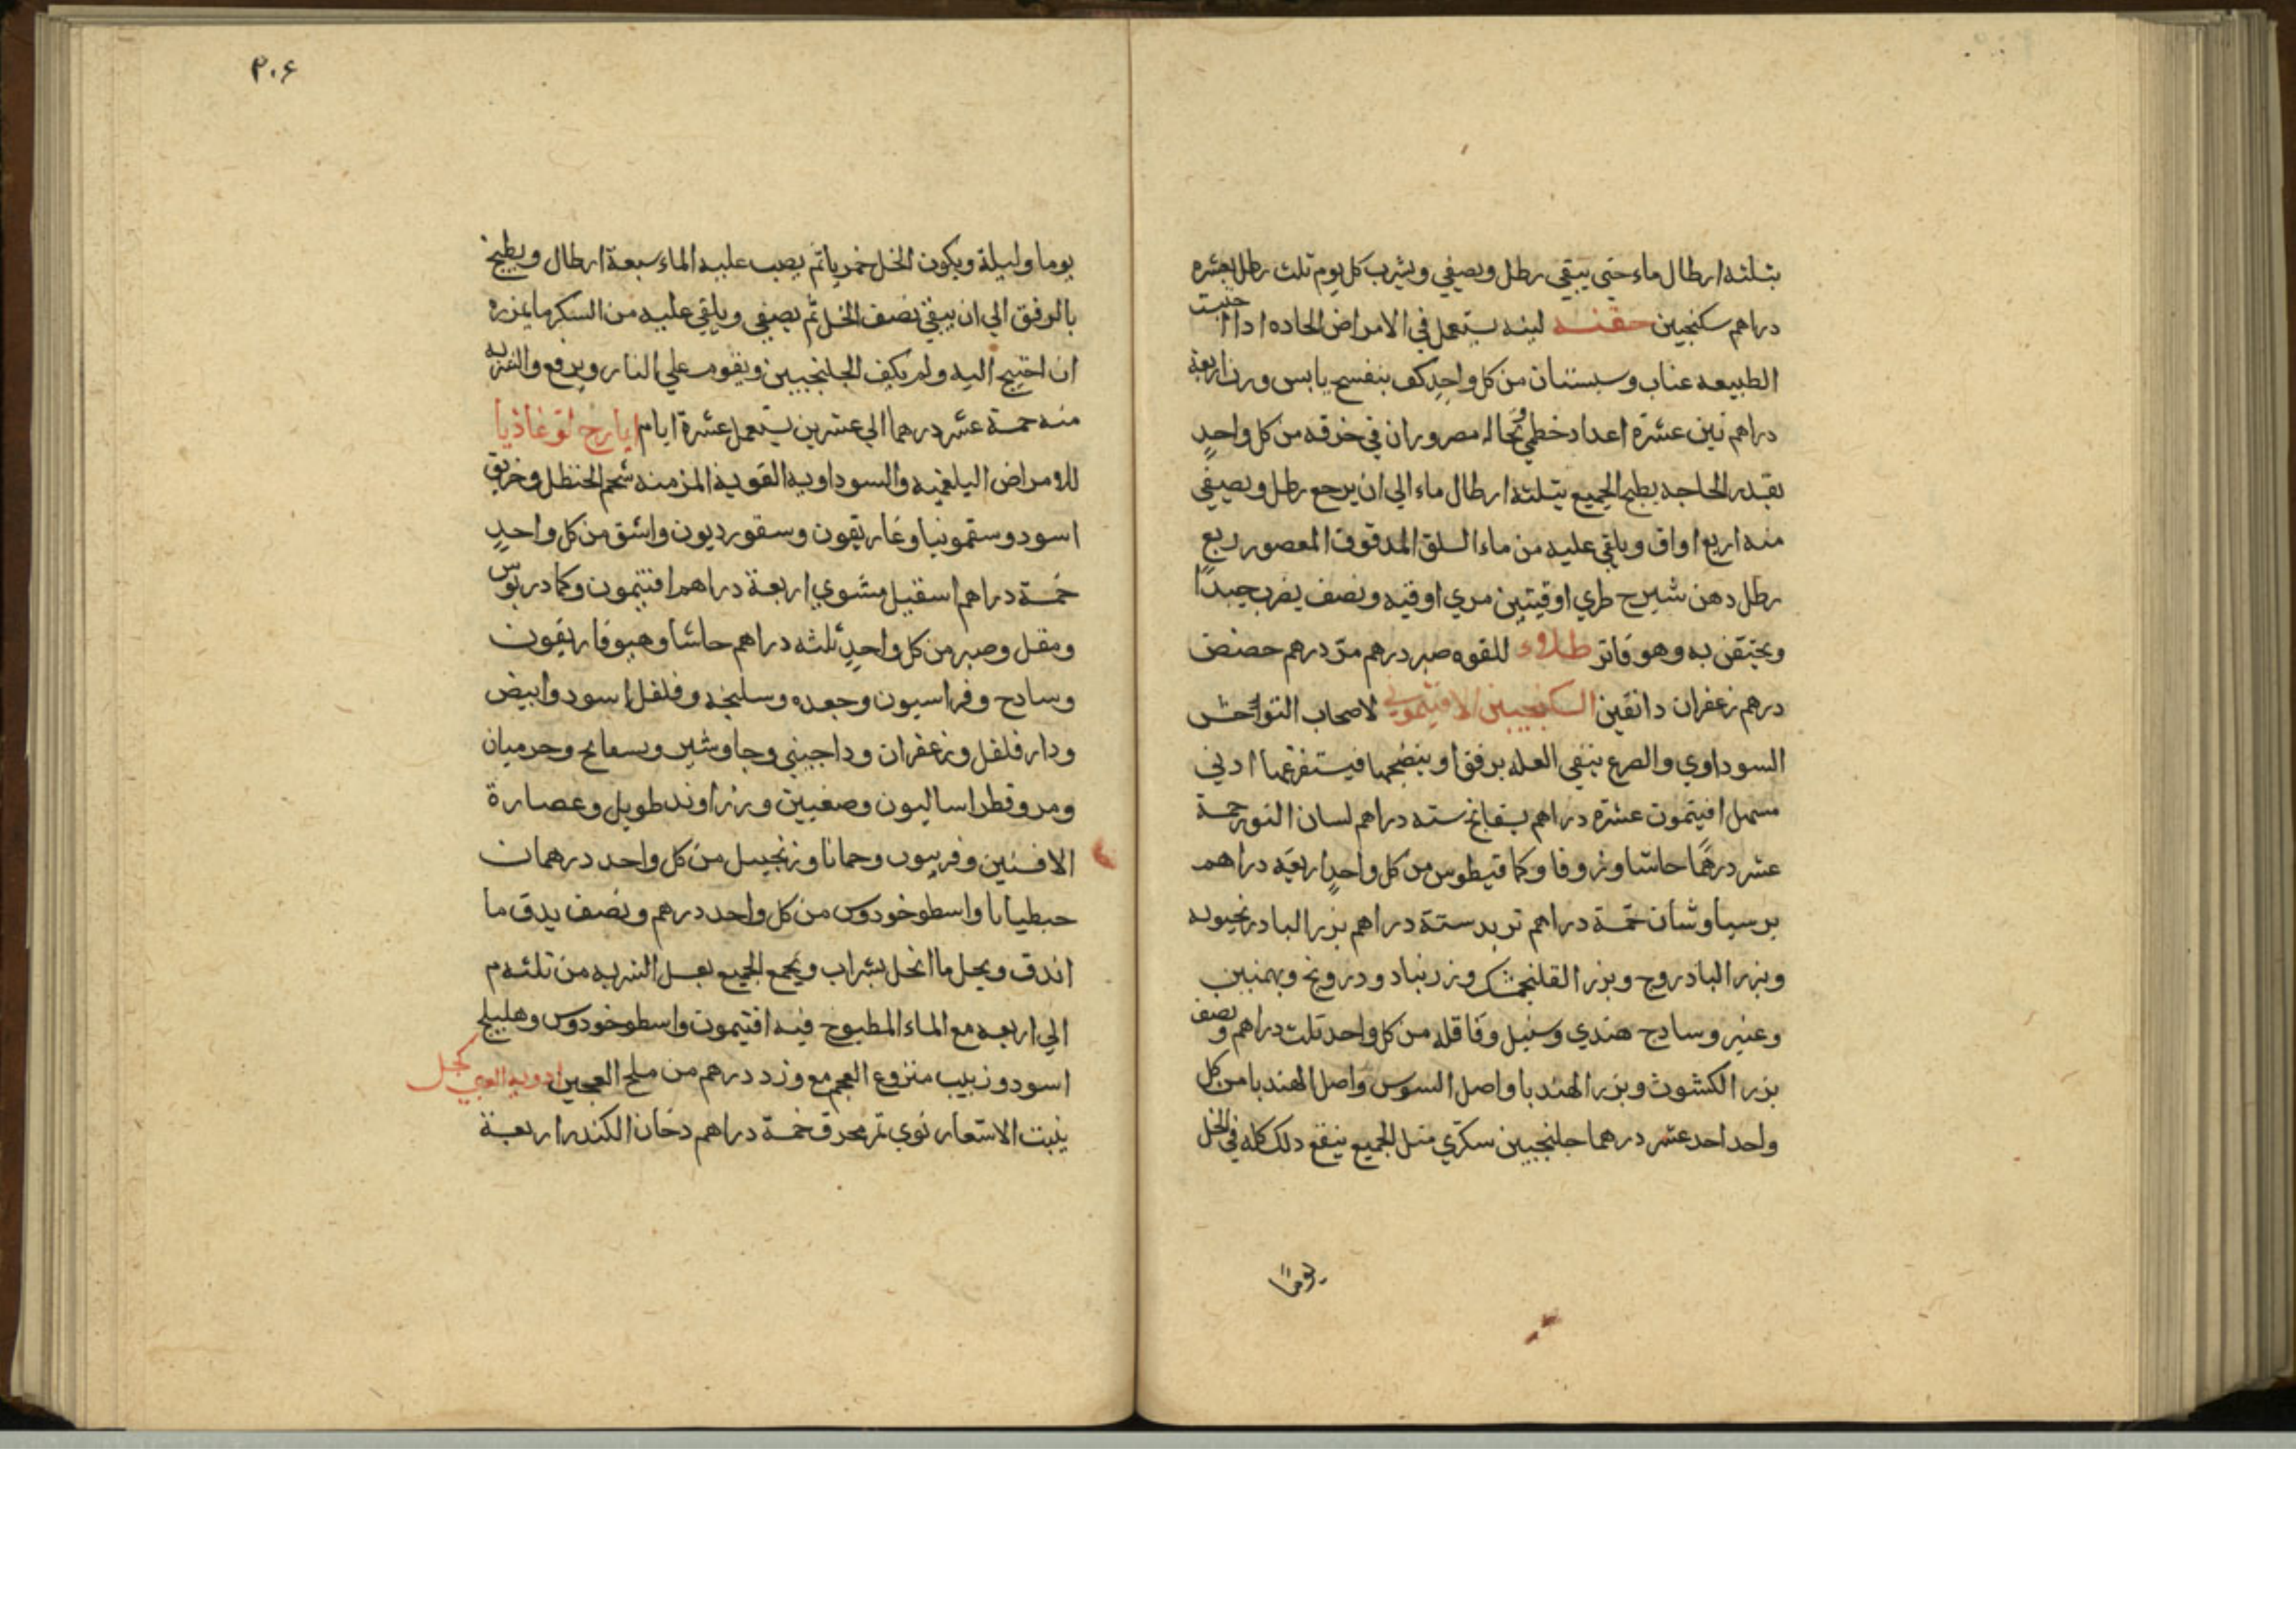 بثلثه ارطال ماء حتى يبقى رطل ويصفي ويشرب كل يوم ثلث رطل بعشره
دراهم سكنجبين حقنه لينه يستعمل في الامراض الحاده اذا
الطبيعه عناب وسبستان من كل واحدٍ كف بنفسج يابس وزن اربعة
دراهم تين عشرة اعداد خطمي ونخاله مصروران في خرقه من كل واحدٍ
بقدر الحاجه يطبخ الجميع بثلثة ارطال ماء الي ان يرجع رطل ويصفي
منه اربع اواق ويلقي عليه من ماء السلق المدقوق المعصور ربع
رطل دهن شيرج طري اوقيتين مري اوقيه ونصف يضرب جيدًا
ويحتقن به وهو فاتر طلاء للقوه صبر درهم مرّ درهم حضض
درهم زعفران دانقين السكنجبين الافتيموني لاصحاب التواحش
السوداوي والصرع ينقي العله برفق او ينضجها فيستفرغها ادني
مسهل افيتمون عشرة دراهم بسفايج سته دراهم لسان الثور خمسة
عشر درهمًا حاشا وزوفا وكمافيطوس من كل واحدٍ اربعة دراهم
برسياوشان خمسة دراهم تربد ستة دراهم بزر البادرنجبويه
وبزر البادروج وبزر الفلنجمشك وزرنباد ودرونج وبهمنين
وعنبر وسادج هندي وسنبل وقاقله من كل واحد ثلث دراهم ونصف
بزر الكشوث وبزر الهندبا واصل السوس واصل الهندبا من كل
واحد احد عشر درهما جلنجبين سكري مثل الجميع ينقع ذلك كله في الخل
يومًا
٣٠٤
يوما وليلة ويكون الخل خمريا ثم يصب عليه الماء سبعة ارطال ويطبخ
بالرفق الي ان يبقي نصف الخل ثم يصفي ويلقي عليه من السكر ما يمزره
ان احتيج اليه ولم يكف الجلنجبين ويقوم علي النار ويرفع والشربه
منه خمسة عشر درهما الي عشرين يستعمل عشرة ايام ايارج لوغاذيا
للامراض البلغميه والسوداويه القوية المزمنه شحم الحنظل وخربق
اسود وسقمونيا وغاريقون وسقورديون واشق من كل واحدٍ
خمسة دراهم اسقيل مشوي اربعة دراهم افتيمون وكمادريوس
ومقل وصبر من كل واحدٍ ثلثه دراهم حاشا وهيوفاريقون
وسادج وفراسيون وجعده وسليخه وفلفل اسود وابيض
ودار فلفل وزعفران ودارجيني وجاوشير وبسفايج وجرميان
ومر وقطر اساليون وصغبين وزراوند طويل وعصارة
الافسنين وفربيون وحماما وزنجبيل من كل واحد درهمان
حبطيانا واسطوخودوس من كل واحد درهم ونصف يدق ما
اندق ويحل ما انحل بشراب ويجمع الجميع بعسل الشربه من ثلثه م
الي اربعه مع الماء المطبوخ فيه افتيمون واسطوخودوس وهليلج
اسود وزبيب منزوع العجم مع وزد درهم من ملح العجين ادويه العين كحل
ينبت الاشعار نوي تمر محرق خمسة دراهم دخان الكندر اربعة